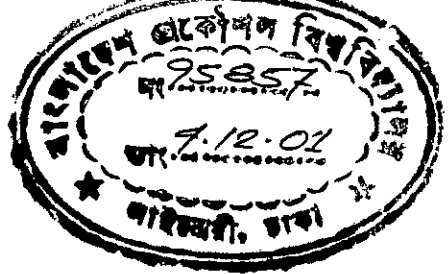 বাংলাদেশ প্রকৌশল বিশ্ববিদ্যালয়
নং 95857
তাং 9.12.01
লাইব্রেরী, ঢাকা